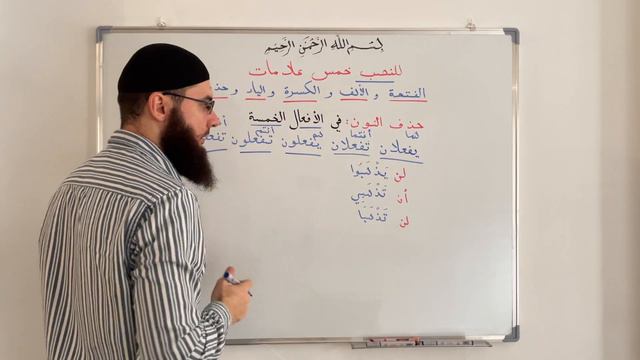 بِسْمِ اللهِ الرَّحْمٰنِ الرَّحِيْمِ
للنصب خمس علامات
الفتحة والألف والكسرة والياء وحذ
حذف النون: في الأفعال الخمسة
هما أنتما هم أنتم
يفعلان تفعلان يفعلون تفعلون تفع
لن يَذْهَبُوا
أن تَذْهَبِي
لن تَذْهَبَا